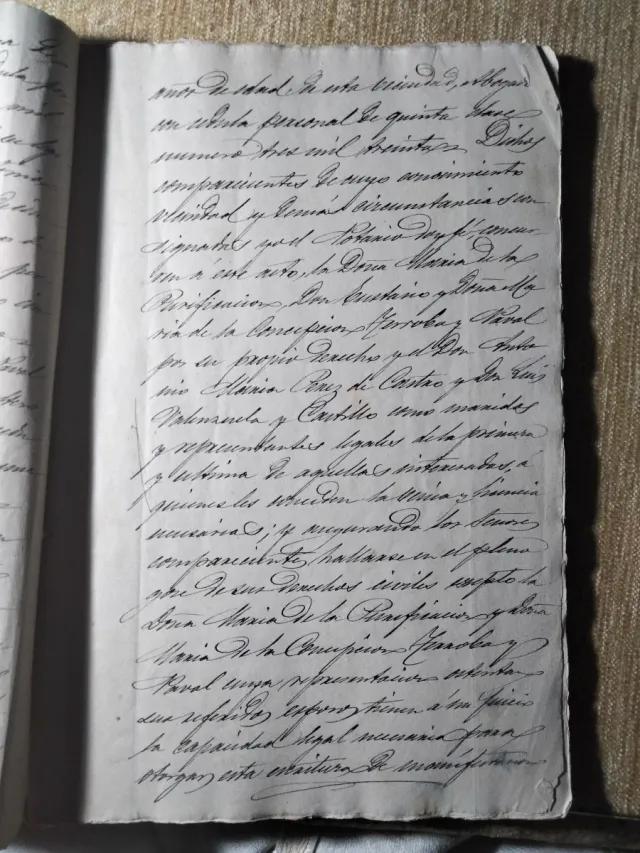 años de edad, de esta vecindad, Abogado
con cedula personal de quinta clase
numero tres mil treinta. Dichos
comparecientes de cuyo conocimiento
vecindad y demás circunstancias con
signadas yo el Notario doy fé, concur
ren á este acto, la Doña Maria de la
Purificacion, Don Gustavo y Doña Ma
ria de la Concepcion Terroba y Naval
por su propio derecho y el Don Anto
nio Maria Perez de Castro y Don Luis
Valenzuela y Castillo como maridos
y representantes legales de la primera
y ultima de aquellas interesadas, á
quienes les conceden la venia y licencia
necesarias; y asegurando los Señores
comparecientes hallarse en el pleno
goce de sus derechos civiles escepto la
Doña Maria de la Purificacion y Doña
Maria de la Concepcion Terroba y
Naval cuya representacion ostentan
sus referidos esposos, tienen á mi juicio
la capacidad legal necesaria para
otorgar esta escritura de manifestacion